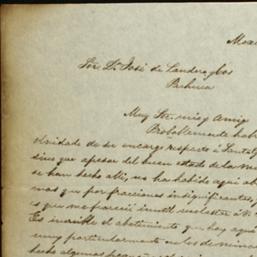 Mexi
Sor. Dn. José de Landero y Cos
Pachuca
Muy Sr. mio y Amigo
Probablemente hab
olvidado de su encargo respecto á
sino que apesar del buen estado de la
se han hecho alli, no ha habido aqui
mas que por fracciones insignificantes,
es que me pareció inutil molestar á V.
Es increible el abatimiento que hay aqui
muy particularmente en los de minas
hecho algunas